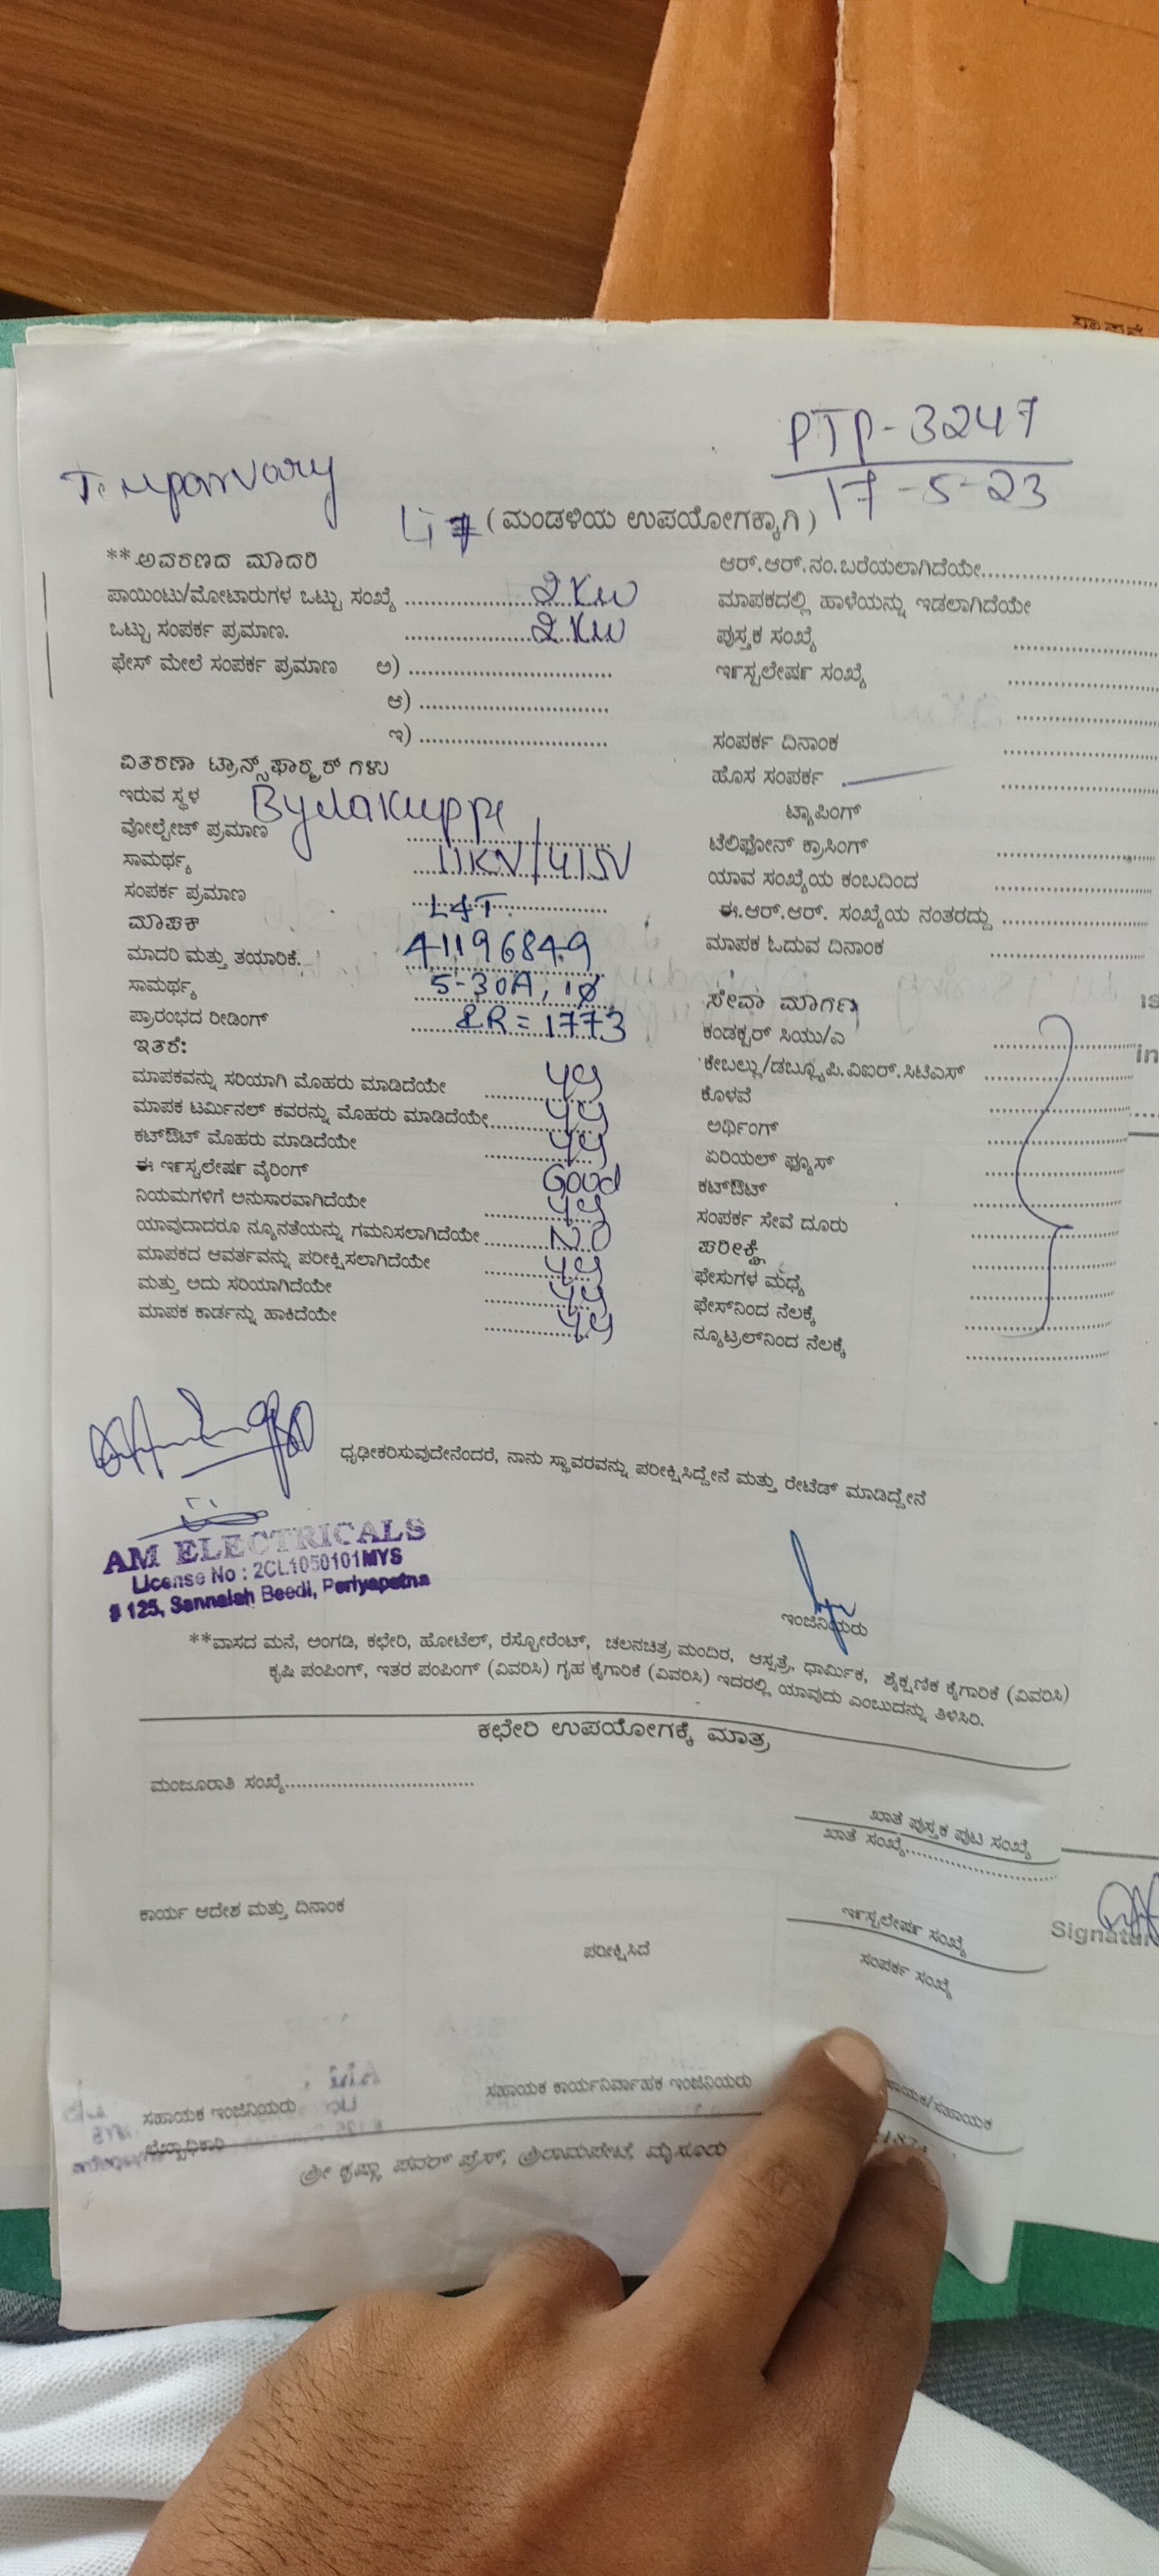 PTP-3247
Temporary
17-5-23
(ಮಂಡಳಿಯ ಉಪಯೋಗಕ್ಕಾಗಿ)
**ಅವರಣದ ಮಾದರಿ
ಪಾಯಿಂಟು/ಮೋಟಾರುಗಳ ಒಟ್ಟು ಸಂಖ್ಯೆ 2KW
ಒಟ್ಟು ಸಂಪರ್ಕ ಪ್ರಮಾಣ. 2KW
ಫೇಸ್ ಮೇಲೆ ಸಂಪರ್ಕ ಪ್ರಮಾಣ ಅ)
ಆ)
ಇ)
ವಿತರಣಾ ಟ್ರಾನ್ಸ್‌ಫಾರ್‍ಮರ್ ಗಳು
ಇರುವ ಸ್ಥಳ Bylakuppe
ವೋಲ್ಟೇಜ್ ಪ್ರಮಾಣ
ಸಾಮರ್ಥ್ಯ 11KV/415V
ಸಂಪರ್ಕ ಪ್ರಮಾಣ
ಮಾಪಕ L&T
ಮಾದರಿ ಮತ್ತು ತಯಾರಿಕೆ. 41196849
ಸಾಮರ್ಥ್ಯ 5-30A, 1Ø
ಪ್ರಾರಂಭದ ರೀಡಿಂಗ್ IR = 1773
ಇತರೆ:
ಮಾಪಕವನ್ನು ಸರಿಯಾಗಿ ಮೊಹರು ಮಾಡಿದೆಯೇ
ಮಾಪಕ ಟರ್ಮಿನಲ್ ಕವರನ್ನು ಮೊಹರು ಮಾಡಿದೆಯೇ
ಕಟ್‌ಔಟ್ ಮೊಹರು ಮಾಡಿದೆಯೇ
ಈ ಇನ್ಸ್ಟಲೇಷನ್ ವೈರಿಂಗ್ Good
ನಿಯಮಗಳಿಗೆ ಅನುಸಾರವಾಗಿದೆಯೇ
ಯಾವುದಾದರೂ ನ್ಯೂನತೆಯನ್ನು ಗಮನಿಸಲಾಗಿದೆಯೇ NO
ಮಾಪಕದ ಆವರ್ತವನ್ನು ಪರೀಕ್ಷಿಸಲಾಗಿದೆಯೇ
ಮತ್ತು ಅದು ಸರಿಯಾಗಿದೆಯೇ
ಮಾಪಕ ಕಾರ್ಡನ್ನು ಹಾಕಿದೆಯೇ
ಆರ್.ಆರ್.ನಂ.ಬರೆಯಲಾಗಿದೆಯೇ
ಮಾಪಕದಲ್ಲಿ ಹಾಳೆಯನ್ನು ಇಡಲಾಗಿದೆಯೇ
ಪುಸ್ತಕ ಸಂಖ್ಯೆ
ಇನ್ಸ್ಟಲೇಷನ್ ಸಂಖ್ಯೆ
ಸಂಪರ್ಕ ದಿನಾಂಕ
ಹೊಸ ಸಂಪರ್ಕ
ಟ್ಯಾಪಿಂಗ್
ಟೆಲಿಫೋನ್ ಕ್ರಾಸಿಂಗ್
ಯಾವ ಸಂಖ್ಯೆಯ ಕಂಬದಿಂದ
ಈ.ಆರ್.ಆರ್. ಸಂಖ್ಯೆಯ ನಂತರದ್ದು
ಮಾಪಕ ಓದುವ ದಿನಾಂಕ
ಸೇವಾ ಮಾರ್ಗ
ಕಂಡಕ್ಟರ್ ಸಿಯು/ಎ
ಕೇಬಲ್ಲು/ಡಬ್ಲ್ಯೂಪಿ.ವಿಐರ್.ಸಿಟಿಎಸ್
ಕೊಳವೆ
ಅರ್ಥಿಂಗ್
ಏರಿಯಲ್ ಫ್ಯೂಸ್
ಕಟ್‌ಔಟ್
ಸಂಪರ್ಕ ಸೇವೆ ದೂರು
ಪರೀಕ್ಷೆ
ಫೇಸುಗಳ ಮಧ್ಯೆ
ಫೇಸ್‌ನಿಂದ ನೆಲಕ್ಕೆ
ನ್ಯೂಟ್ರಲ್‌ನಿಂದ ನೆಲಕ್ಕೆ
ಧೃಢೀಕರಿಸುವುದೇನೆಂದರೆ, ನಾನು ಸ್ಥಾವರವನ್ನು ಪರೀಕ್ಷಿಸಿದ್ದೇನೆ ಮತ್ತು ರೇಟೆಡ್ ಮಾಡಿದ್ದೇನೆ
AM ELECTRICALS
License No : 2CL1050101MYS
# 125, Sannaiah Beedi, Periyapatna
ಇಂಜಿನಿಯರು
**ವಾಸದ ಮನೆ, ಅಂಗಡಿ, ಕಛೇರಿ, ಹೋಟೆಲ್, ರೆಸ್ಟೋರೆಂಟ್, ಚಲನಚಿತ್ರ ಮಂದಿರ, ಆಸ್ಪತ್ರೆ, ಧಾರ್ಮಿಕ, ಶೈಕ್ಷಣಿಕ ಕೈಗಾರಿಕೆ (ವಿವರಿಸಿ)
ಕೃಷಿ ಪಂಪಿಂಗ್, ಇತರ ಪಂಪಿಂಗ್ (ವಿವರಿಸಿ) ಗೃಹ ಕೈಗಾರಿಕೆ (ವಿವರಿಸಿ) ಇದರಲ್ಲಿ ಯಾವುದು ಎಂಬುದನ್ನು ತಿಳಿಸಿರಿ.
ಕಛೇರಿ ಉಪಯೋಗಕ್ಕೆ ಮಾತ್ರ
ಮಂಜೂರಾತಿ ಸಂಖ್ಯೆ
ಖಾತೆ ಪುಸ್ತಕ ಪುಟ ಸಂಖ್ಯೆ
ಖಾತೆ ಸಂಖ್ಯೆ
ಕಾರ್ಯ ಆದೇಶ ಮತ್ತು ದಿನಾಂಕ
ಇನ್ಸ್ಟಲೇಷನ್ ಸಂಖ್ಯೆ
ಪರೀಕ್ಷಿಸಿದೆ
ಸಂಪರ್ಕ ಸಂಖ್ಯೆ
ಸಹಾಯಕ ಇಂಜಿನಿಯರು
ಸಹಾಯಕ ಕಾರ್ಯನಿರ್ವಾಹಕ ಇಂಜಿನಿಯರು
ಶ್ರೀ ಕೃಷ್ಣಾ ಪವರ್ ಪ್ರೆಸ್, ಶ್ರೀರಾಮಪೇಟೆ, ಮೈಸೂರು